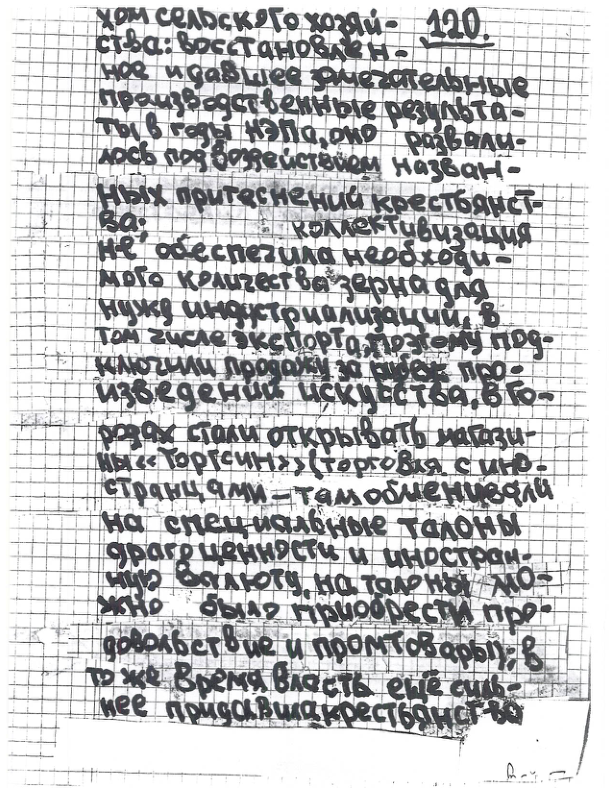 хом сельского хозяй- 120.
ства: восстановлен-
ное и давшее замечательные
производственные результа-
ты в годы НЭПа, оно развали-
лось под воздействием назван-
ных притеснений крестьянст-
ва; коллективизация
не обеспечила необходи-
мого количества зерна для
нужд индустриализации, в
том числе экспорта, поэтому под-
ключили продажу за рубеж про-
изведений искусства, в го-
родах стали открывать магази-
ны «Торгсин» (торговля с ино-
странцами – там обменивали
на специальные талоны
драгоценности и иностран-
ную валюту, на талоны мо-
жно было приобрести про-
довольствие и промтовары); в
то же время власть ещё силь-
нее придавила крестьянство